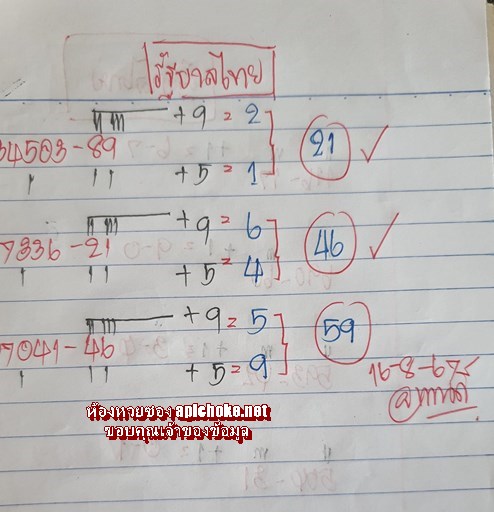 รัฐบาลไทย
+ 9 = 2
34503 - 89
21
+ 5 = 1
+ 9 = 6
7336 - 21
46
+ 5 = 4
+ 9 = 5
7041 - 46
59
+ 5 = 9
16-8-67
ห้องหวยซอง apichoke.net
ขอบคุณเจ้าของข้อมูล